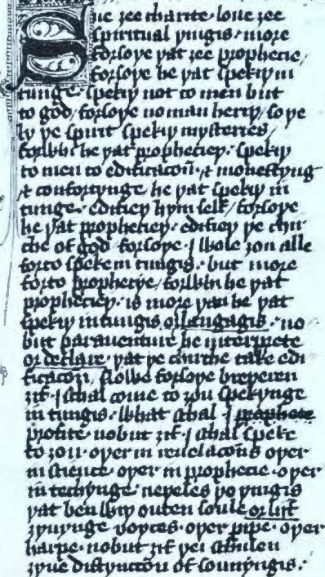 Sue zee charite loue zee
spiritual þingis · more
forsoþe þat zee prophecie /
forsoþe he þat spekiþ in
tunge · spekiþ not to men but
to god / forsoþe no man heriþ / soþe
ly þe spirit spekiþ mysteries /
forwhi he þat prophecieþ · spekiþ
to men to edificacoñ · & monestyng
& confortynge / he þat spekiþ in
tunge · edifieþ hym self / forsoþe
he þat propheciep · edifieþ þe chir
che of god forsoþe · I wole zou alle
forto speke in tungis · but more
forto prophecye / forwhi he þat
propheciep · is more þan he þat
spekiþ in tungis or langagis · no
but parauenture he interprete
or declare · þat þe chirche take edi
ficacoñ / Nowe forsoþe breþeren
zif · I schal come to zou spekynge
in tungis · What schal I prophete
profite · nobut zif · I schal speke
to zou · oþer in reuelacoñs oþer
in science · oþer in prophecie · oþer
in techynge · neþeles þo þingis
þat ben wiþ outen soule or lif
zyuynge voyces · oþer pipe · oþer
harpe · nobut zif þei schulen
zyue distynccoñ of sounyngis ·